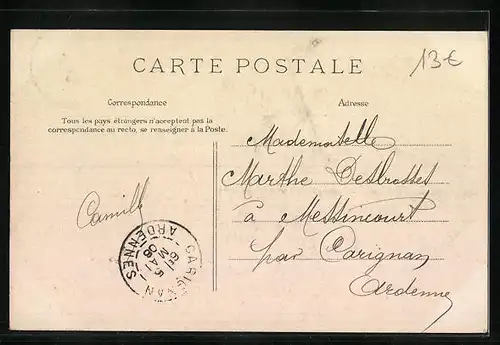 CARTE POSTALE
13€
Correspondance
Adresse
Tous les pays étrangers n'acceptent pas la
correspondance au recto, se renseigner à la Poste.
Mademoiselle
Marthe DesBrosses
à Messincourt
par Carignan
Ardenne
Camille
CARIGNAN
ARDENNES
5
MAI
08